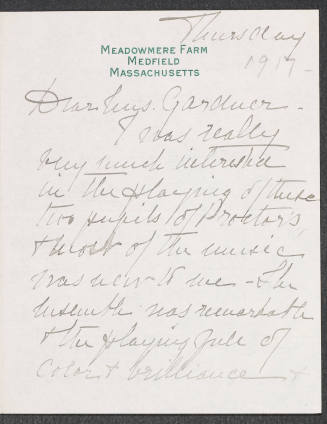 Thursday
Meadowmere Farm
Medfield
Massachusetts
1917-
Dear Mrs. Gardner -
I was really
very much interested
in the playing of these
two pupils of Proctor's,
& most of the music
was new to me - The
ensemble was remarkable
& the playing full of
color & brilliance &